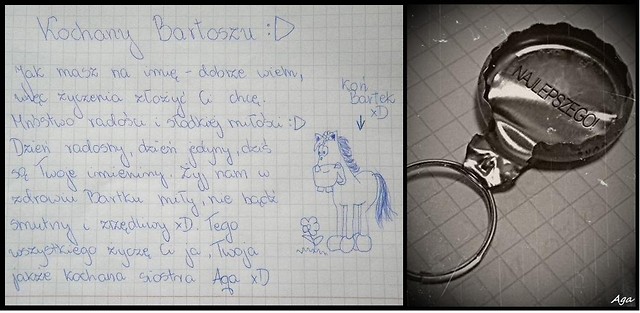 Kochany Bartoszu :D
Jak masz na imię - dobrze wiem,
więc życzenia złożyć Ci chcę.
Mnóstwo radości i słodkiej miłości :D
Dzień radosny, dzień jedyny, dziś
są Twoje umieniny. Żyj nam w
zdrowiu Bartku miły, nie bądź
smutny i zrzędliwy xD. Tego
wszystkiego życzę Ci ja, Twoja
jakże kochana siostra Aga xD
koń
Bartek
xD
NAJLEPSZEGO!
Aga